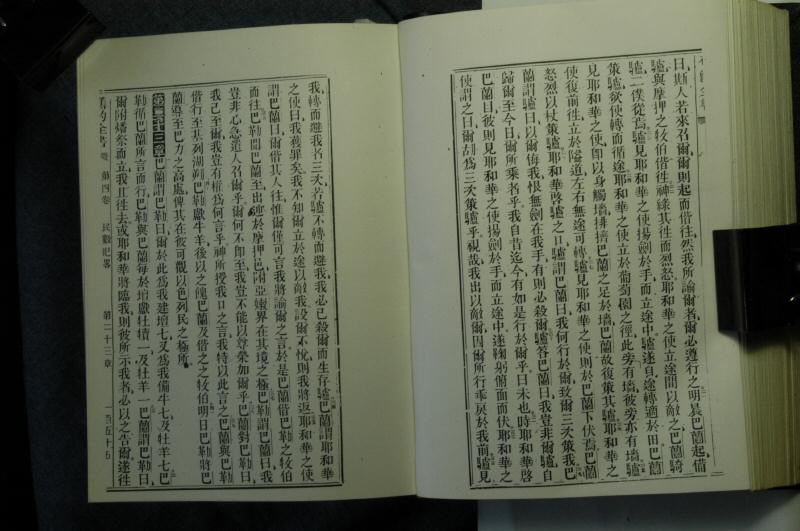 曰、斯人若來召爾、爾則起而偕往、然我所諭爾者、爾必遵行之、明晨巴蘭起、備
驢、與摩押之牧伯偕往、神緣其往而烈怒、耶和華之使立途間以敵之、巴蘭騎
驢、二僕從焉、驢見耶和華之使揚劍於手而立途中、驢遂自途轉適於田、巴蘭
策驢、欲使轉而循途、耶和華之使立於葡萄園之徑、此旁有墻、彼旁亦有墻、驢
見耶和華之使、即以身觸墻、排擠巴蘭之足於墻、巴蘭故復策其驢、耶和華之
使復前往、立於隘道、左右無途可轉、驢見耶和華之使、則於巴蘭下伏焉、巴蘭
怒烈、以杖策驢、耶和華啓驢之口、驢謂巴蘭曰、我何行於爾、致爾三次策我、巴
蘭謂驢曰、以爾侮我、恨無劍在我手、有則必殺爾、驢答巴蘭曰、我豈非爾驢、自
歸爾至今日、爾所乘者乎、我自昔迄今、有如是行於爾乎、曰、未也、時耶和華啓
巴蘭目、彼則見耶和華之使、揚劍於手、而立途中、遂鞠躬俯面而伏、耶和華之
使謂之曰、爾胡爲三次策驢乎、視哉、我出以敵爾、因爾所行、乖戾於我前、驢見
我、轉而避我者三次、若驢不轉而避我、我必已殺爾、而生存驢、巴蘭謂耶和華
之使曰、我獲罪矣、我不知爾立於途以敵我、設爾不悅、則我將返、耶和華之使
謂巴蘭曰、爾偕其人往、惟爾僅可言我將諭爾之言、於是巴蘭偕巴勒之牧伯
而往、巴勒聞巴蘭至、出迎於摩押邑、亞嫩界、在其境之極、巴勒謂巴蘭曰、我
豈非心急遣人召爾乎、爾何不卽至我、豈不能以尊榮加爾乎、巴蘭對巴勒曰、
我已至爾、我豈有權爲何言乎、神所授我口之言、我特以此言之、巴蘭與巴勒
偕行、至基列湖鎖、巴勒獻牛羊、後以之餽巴蘭、及偕之之牧伯、明日巴勒將巴
蘭導至巴力之高處、俾其在彼可觀以色列民之極所、
第二十三章 巴蘭謂巴勒曰、爾於此爲我建壇七、又爲我備牛七、及牡羊七、巴
勒循巴蘭所言而行、巴勒與巴蘭每於壇獻牡犢一及牡羊一、巴蘭謂巴勒曰、
爾附燔祭而立、我且往去、或耶和華將臨我、則彼所示我者、必以之告爾、遂往
舊約全書 第四卷 民數紀畧 第二十三章 一百五十五